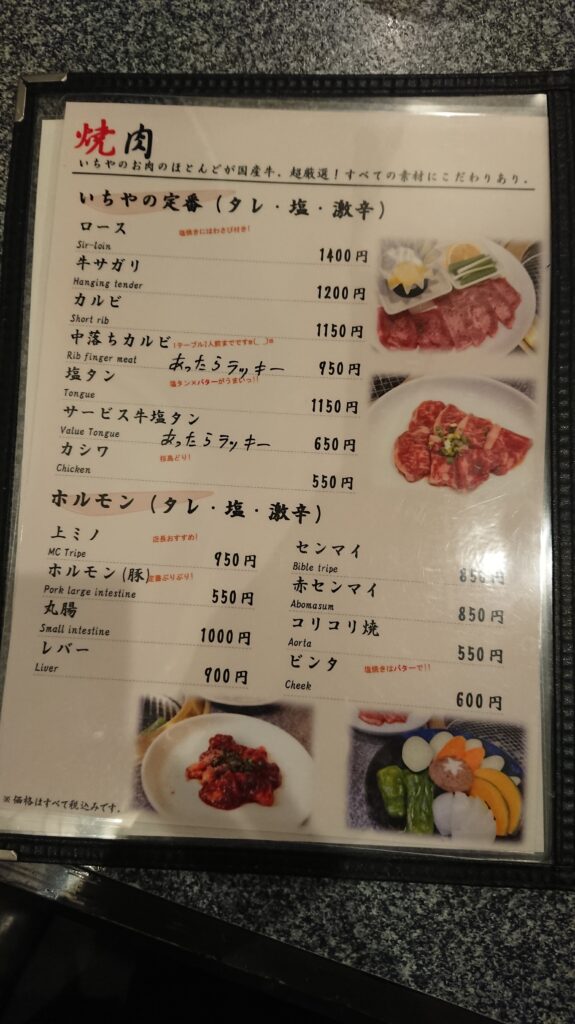 焼肉
いちやのお肉のほとんどが国産牛。超厳選！すべての素材にこだわりあり。
いちやの定番（タレ・塩・激辛）
ロース 塩焼きにはわさび付き！
Sir-loin 1400円
牛サガリ
Hanging tender 1200円
カルビ
Short rib 1150円
中落ちカルビ 1テーブル1人前までですm(_ _)m
Rib finger meat あったらラッキー 950円
塩タン 塩タン×バターがうまいっ!!
Tongue 1150円
サービス牛塩タン
Value Tongue あったらラッキー 650円
カシワ 桜島どり！
Chicken 550円
ホルモン（タレ・塩・激辛）
上ミノ 店長おすすめ！
MC Tripe 950円
ホルモン(豚) 定番ぷりぷり！
Pork large intestine 550円
丸腸
Small intestine 1000円
レバー
Liver 900円
センマイ
Bible tripe 850円
赤センマイ
Abomasum 850円
コリコリ焼
Aorta 550円
ビンタ 塩焼きはバターで!!
Cheek 600円
※価格はすべて税込みです。